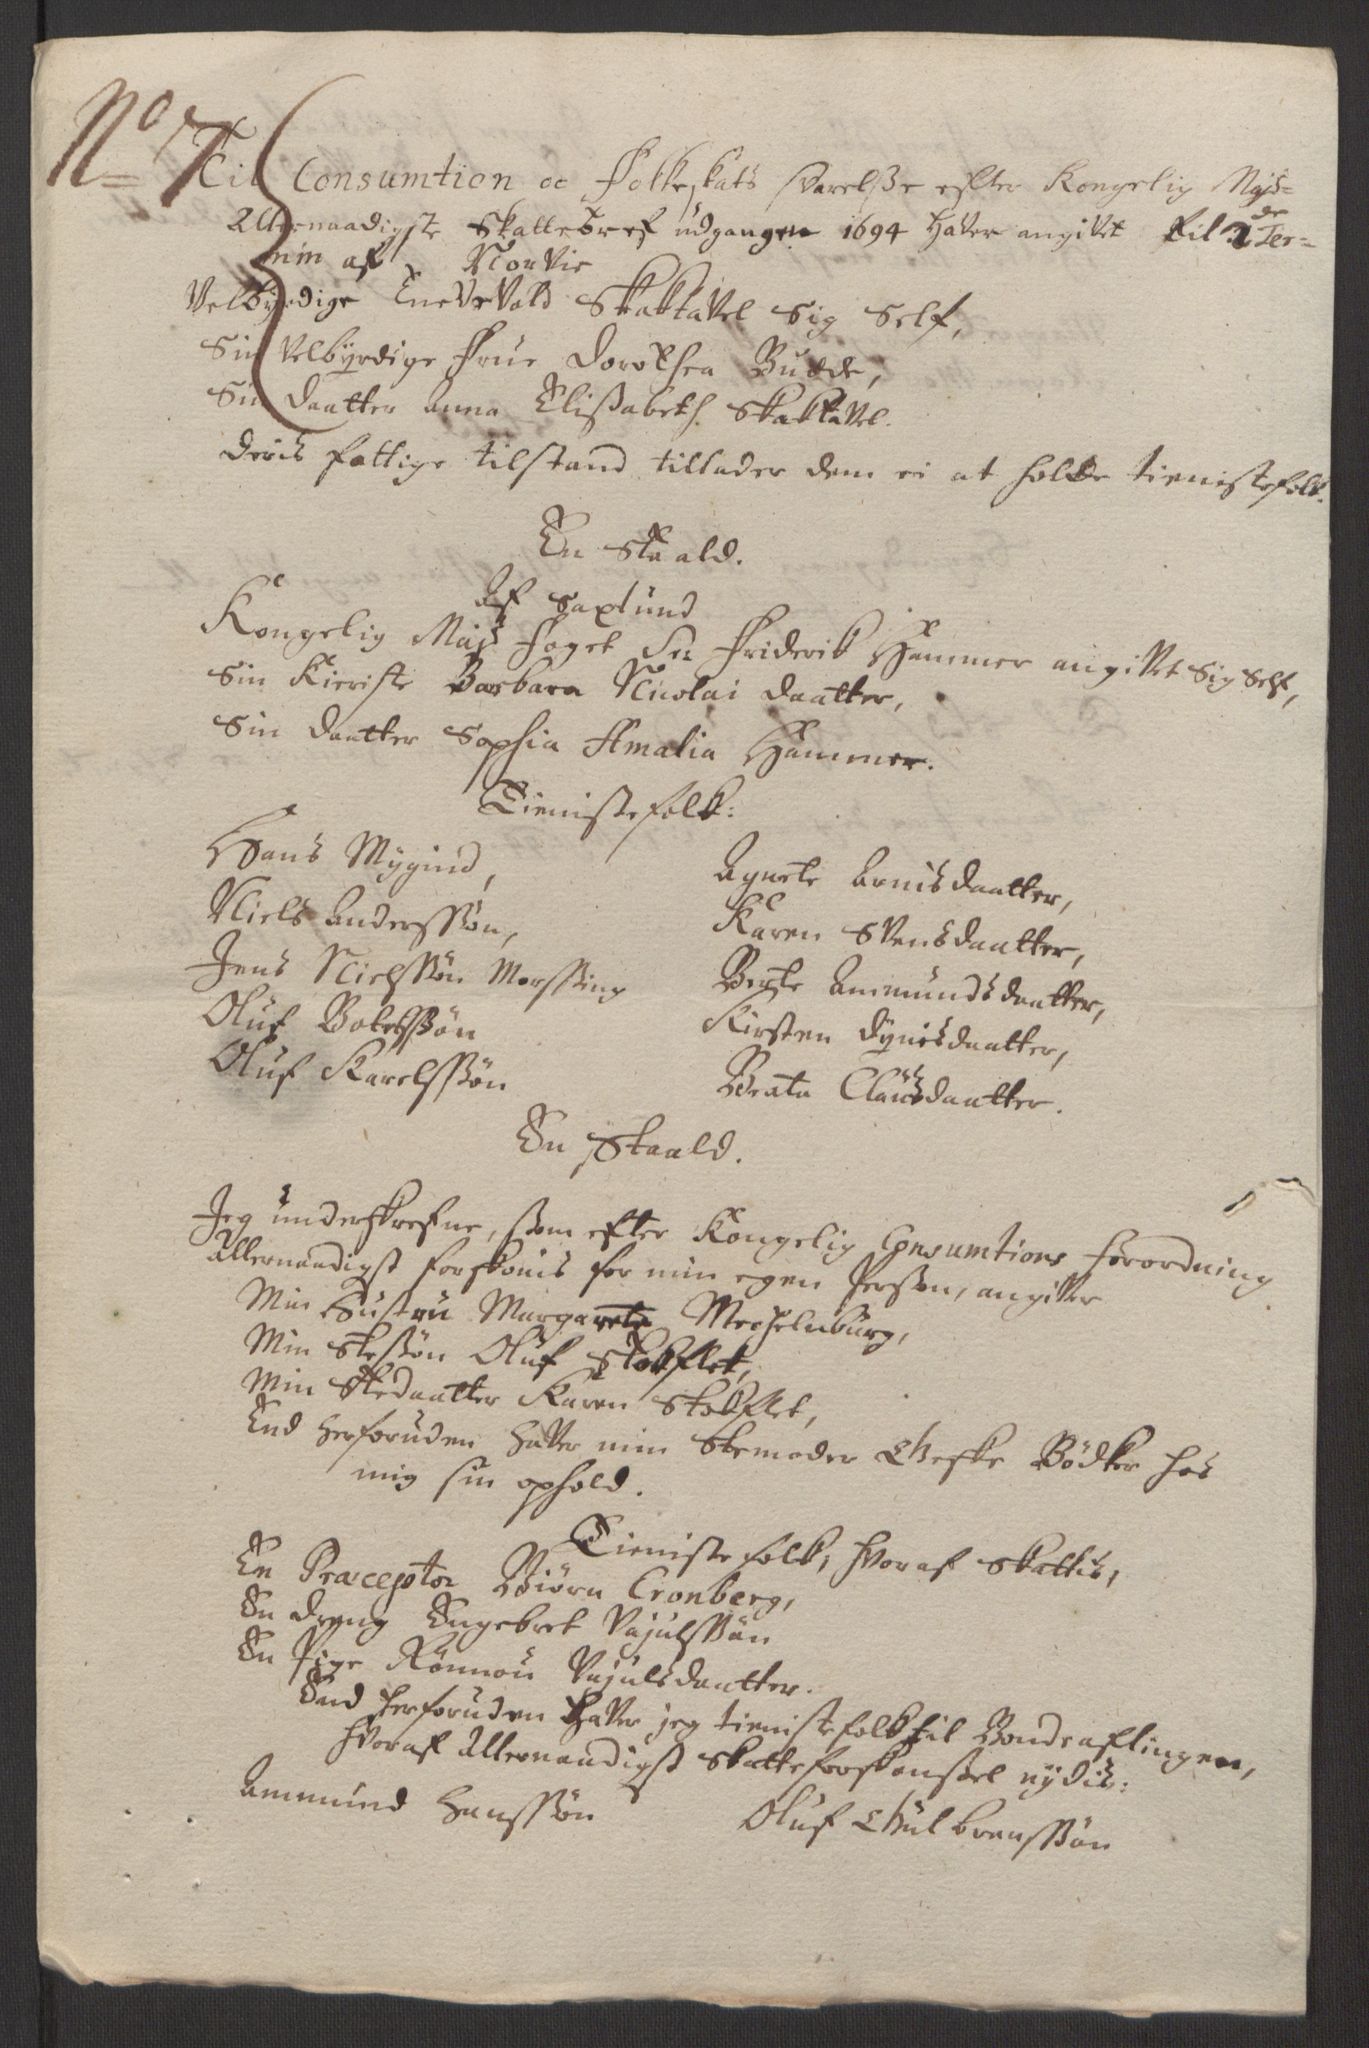 No 7
Til Consumtion oc Folkeskats svarelsse efter Kongelig Majs=
Allernaadigste Skattebref udgangen 1694 haver angivet til 2de Ter=
min af Norvie
Velbyrdige Enevvold Skaktavel Sig Self,
Sin Velbyrdige Frue Dorothea Budde,
Sin Daatter Anna Elissabeth Skaktavel.
Deris fattige tilstand tillader dem ei at holde tienistefolk.
En Skaald.
Af Saxlund
Kongelig Majs Foget Sr Friderik Hammer angivet Sig Self,
Sin Kieriste Barbara Nicolai Daatter,
Sin Daatter Sophia Amalia Hammer.
Tienistefolk:
Hans Mygind,
Niels Anderssøn,
Jens Nielssøn Morssing
Oluf Botelssøn
Oluf Karelssøn
Agnete Arnisdaatter,
Karen Svensdaatter,
Berte Ammundsdaatter,
Kirsten Dynisdaatter,
Beata Clausdaatter.
En Skaald.
Jeg underskrefne, ssom efter Kongelig Consumtions Forordning
Allernaadigst forskonis for min egen Persson, angiver
Min Hustru Margarete Mechelnburg,
Min Stessøn Oluf Stokflet,
Min Stedaatter Karen Stokflet,
End herforuden haver min Stemoder Wefke Bødker hos
mig sin ophold.
Tienistefolk, hvoraf Skattis,
En Præceptor Biørn Cronberg,
En dreng Engebret Vajulssøn
En Pige Rønnou Vajulsdaatter.
End herforuden haver jeg tienistefolk til Bondeaflingen,
hvoraf Allernaadigst Skatteforskonssel nydis:
Ammund Hanssøn
Oluf Gulbrenssøn